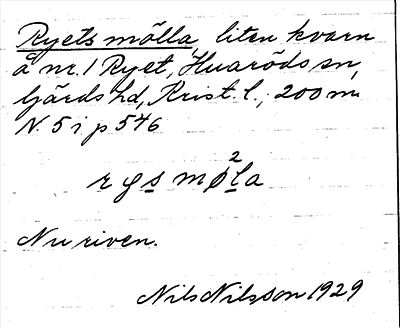 Ryets mölla liten kvarn
å nr. 1 Ryet, Huaröds sn,
ljärds hd, Krist. l., 200 m
N. 5 i p 546
r y s m ø² l a
Nu riven.
Nils Nilsson 1929